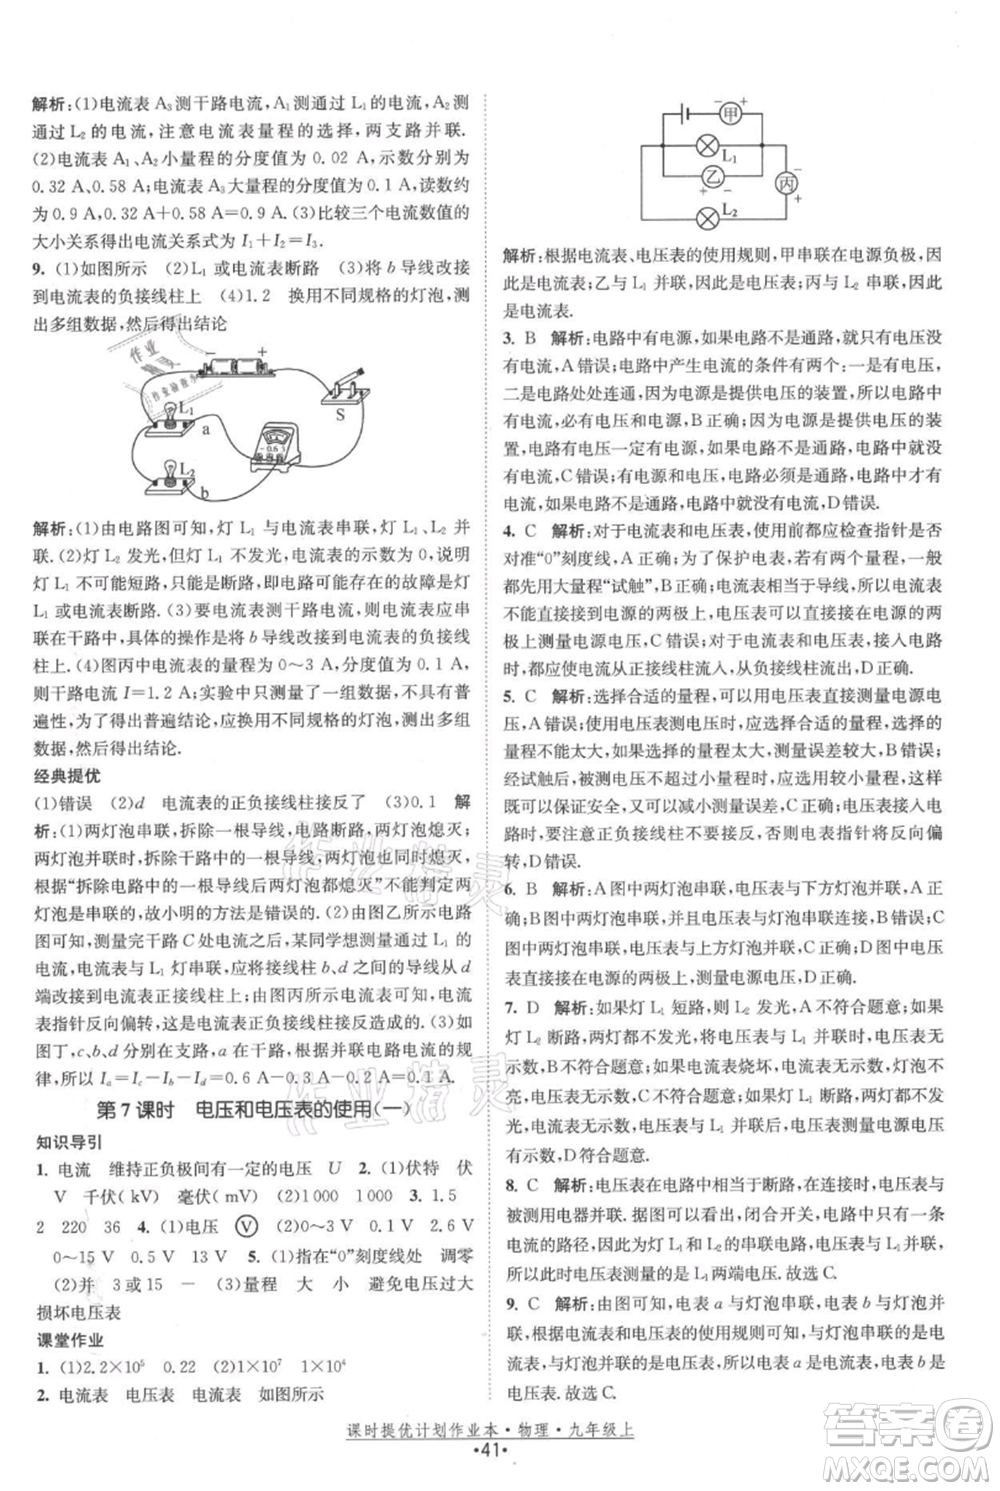 解析:(1)电流表 A₃ 测干路电流,A₁测通过 L₁ 的电流,A₂ 测
通过 L₂ 的电流,注意电流表量程的选择,两支路并联.
(2)电流表 A₁、A₂ 小量程的分度值为 0.02 A,示数分别为
0.32 A、0.58 A;电流表 A₃大量程的分度值为 0.1 A,读数约
为 0.9 A,0.32 A+0.58 A=0.9 A. (3)比较三个电流数值的
大小关系得出电流关系式为 I₁+I₂=I₃.
9. (1)如图所示 (2)L₁ 或电流表断路 (3)将 b 导线改接
到电流表的负接线柱上 (4)1.2 换用不同规格的灯泡,测
出多组数据,然后得出结论
− +
L₁ a S
−0.6 3
L₂ b
解析:(1)由电路图可知,灯 L₁ 与电流表串联,L₁、L₂ 并
联. (2)灯 L₂ 发光,但灯 L₁ 不发光,电流表的示数为 0,说明
灯 L₁ 不可能短路,只能是断路,即电路可能存在的故障是灯
L₁ 或电流表断路. (3)要电流表测干路电流,则电流表应串
联在干路中,具体的操作是将 b 导线改接到电流表的负接线
柱上. (4)图丙中电流表的量程为 0～3 A,分度值为 0.1 A,
则干路电流 I=1.2 A,实验中只测了一组数据,不具有普
遍性,为了得出普遍结论,应换用不同规格的灯泡,测出多组
数据,然后得出结论.
经典提优
(1)错误 (2)d 电流表的正负接线柱接反了 (3)0.1 解
析:(1)两灯泡串联,拆除一根导线,电路断路,两灯泡熄灭;
两灯泡并联时,拆除干路中的一根导线,两灯泡都熄灭,因
为“拆除电路中的一根导线,若两灯泡都熄灭”不能确定是
哪种电路,故小明的方法是错误的. (2)由图乙所示电路图
可知,测量完干路 C 处电流之后,某同学想测量支路中 A 处
电流,电流表与 L₁ 灯串联,应将接在 b、d 之间的导线从 d
端改接到电流表正接线柱上;由图丙所示可知,闭合开关,电
流表指针反向偏转,这是电流表正负接线柱接反造成的. (3)如
图丁,c、b、d 分别在支路,a 在干路,并联电路电流的规
律,所以 Iₐ=I−I_b−I_d=0.6 A−0.3 A−0.2 A=0.1 A.
第 7 课时 电压和电压表的使用(一)
知识导引
1. 电流 维持正负极间有一定的电压 U 2. (1)伏特 伏
V 千伏(kV) 毫伏(mV) (2)1 000 1 000 3. 1.5
2 220 36 4. (1)电压 Ⓥ (2)0～3 V 0.1 V 2.6 V
0～15 V 0.5 V 13 V 5. (1)指在“0”刻度线处 调零
(2)并 3或15 − (3)量程 大 小 避免电压过大
损坏电压表
课堂作业
1. (1)2.2×10⁵ 0.22 (2)1×10⁷ 1×10⁴
2. 电流表 电压表 电流表 如图所示
− + − 甲 +
L₁
− 乙 + − 丙 +
L₂
解析:根据电流表、电压表的使用规则,甲串联在电源负极,
因此是电流表;乙与 L₁ 并联,因此是电压表;丙与 L₂ 串联,因此
是电流表.
3. B 解析:电路中有电源,如果电路不是通路,电路中就没
有电流,A 错误;电路中产生电流的条件:一是电路中有电压,
二是电路处处连通,因为电源是提供电压的,所以电路中有
电流,必须有电压,B 正确;电源是提供电压的装置,所以有
电源,就一定有电压,C 错误;电路两端有电压,如果电路没
有接通,则没有电流,电路必须是通路,电路中才能有持续的
电流,D 错误.
4. C 解析:对于电流表和电压表,使用前都应检查指针是否
对准“0”刻度线,A 正确;为了保护电表,若有两个量程,一般
都先用大量程“试触”,B 正确;电流表相当于导线,不能直接
接到电源的两极上,电压表可以直接接在电源的两极上测量电源电压,C 错误;对于电流表和电压表,接入电路
时,都应使电流从正接线柱流入,从负接线柱流出,D 正确.
5. C 解析:选择合适的量程,可以用电压表直接测量电源电
压,A 错误;使用电压表测电压时,应选择合适的量程,所选
量程不能太大,如果选用的量程太大,测量误差较大,B 错误;
经试触后,所测电压不超过小量程时,选用小量程,这样既
可以保证安全,又可以减小误差,C 正确;将电压表接入电
路时,如果正负接线柱不要接反,电压表指针将反向偏
转,D 错误.
6. B 解析:A 图中两灯泡串联,电压表与下方灯泡并联,A错
误;B图中两灯泡并联,电压表与灯泡并联连接,B 正确;C
图中两灯泡串联,电压表与上方灯泡并联,C 错误;D 图中电压表
直接接在电源的两端,测量电源电压,D 错误.
7. D 解析:如果灯 L₁ 短路,则 L₂ 发光,A 不符合题意;如果
灯 L₂ 断路,两灯都不发光,将电压表与 L₁ 并联时,电压表无
示数,B 不符合题意;如果电流表烧坏,电路断路,电压表无
示数,C 不符合题意;如果灯 L₁ 断路,两灯都不发光,
D 符合题意.
8. C 解析:电压表在电路中相当于断路,使用时应与
被测用电器并联. 据图可以看出,闭合开关,电路中只有一条
电流的路径,因为灯 L₁ 和灯 L₂ 串联,电压表并联在 L₁ 两端,
所以电压表测量的是 L₁两端电压.故选 C.
9. C 解析:由图可知,电表 a 与灯泡串联,电表 b 与灯泡并
联. 电流表与灯泡串联,电压表与灯泡并联,所以电表 a 是电流表,电表 b
是电压表.故选 C.
课时提优计划作业本·物理·九年级上
·41·
作业精灵
作业精灵
答案圈
MXQE.COM